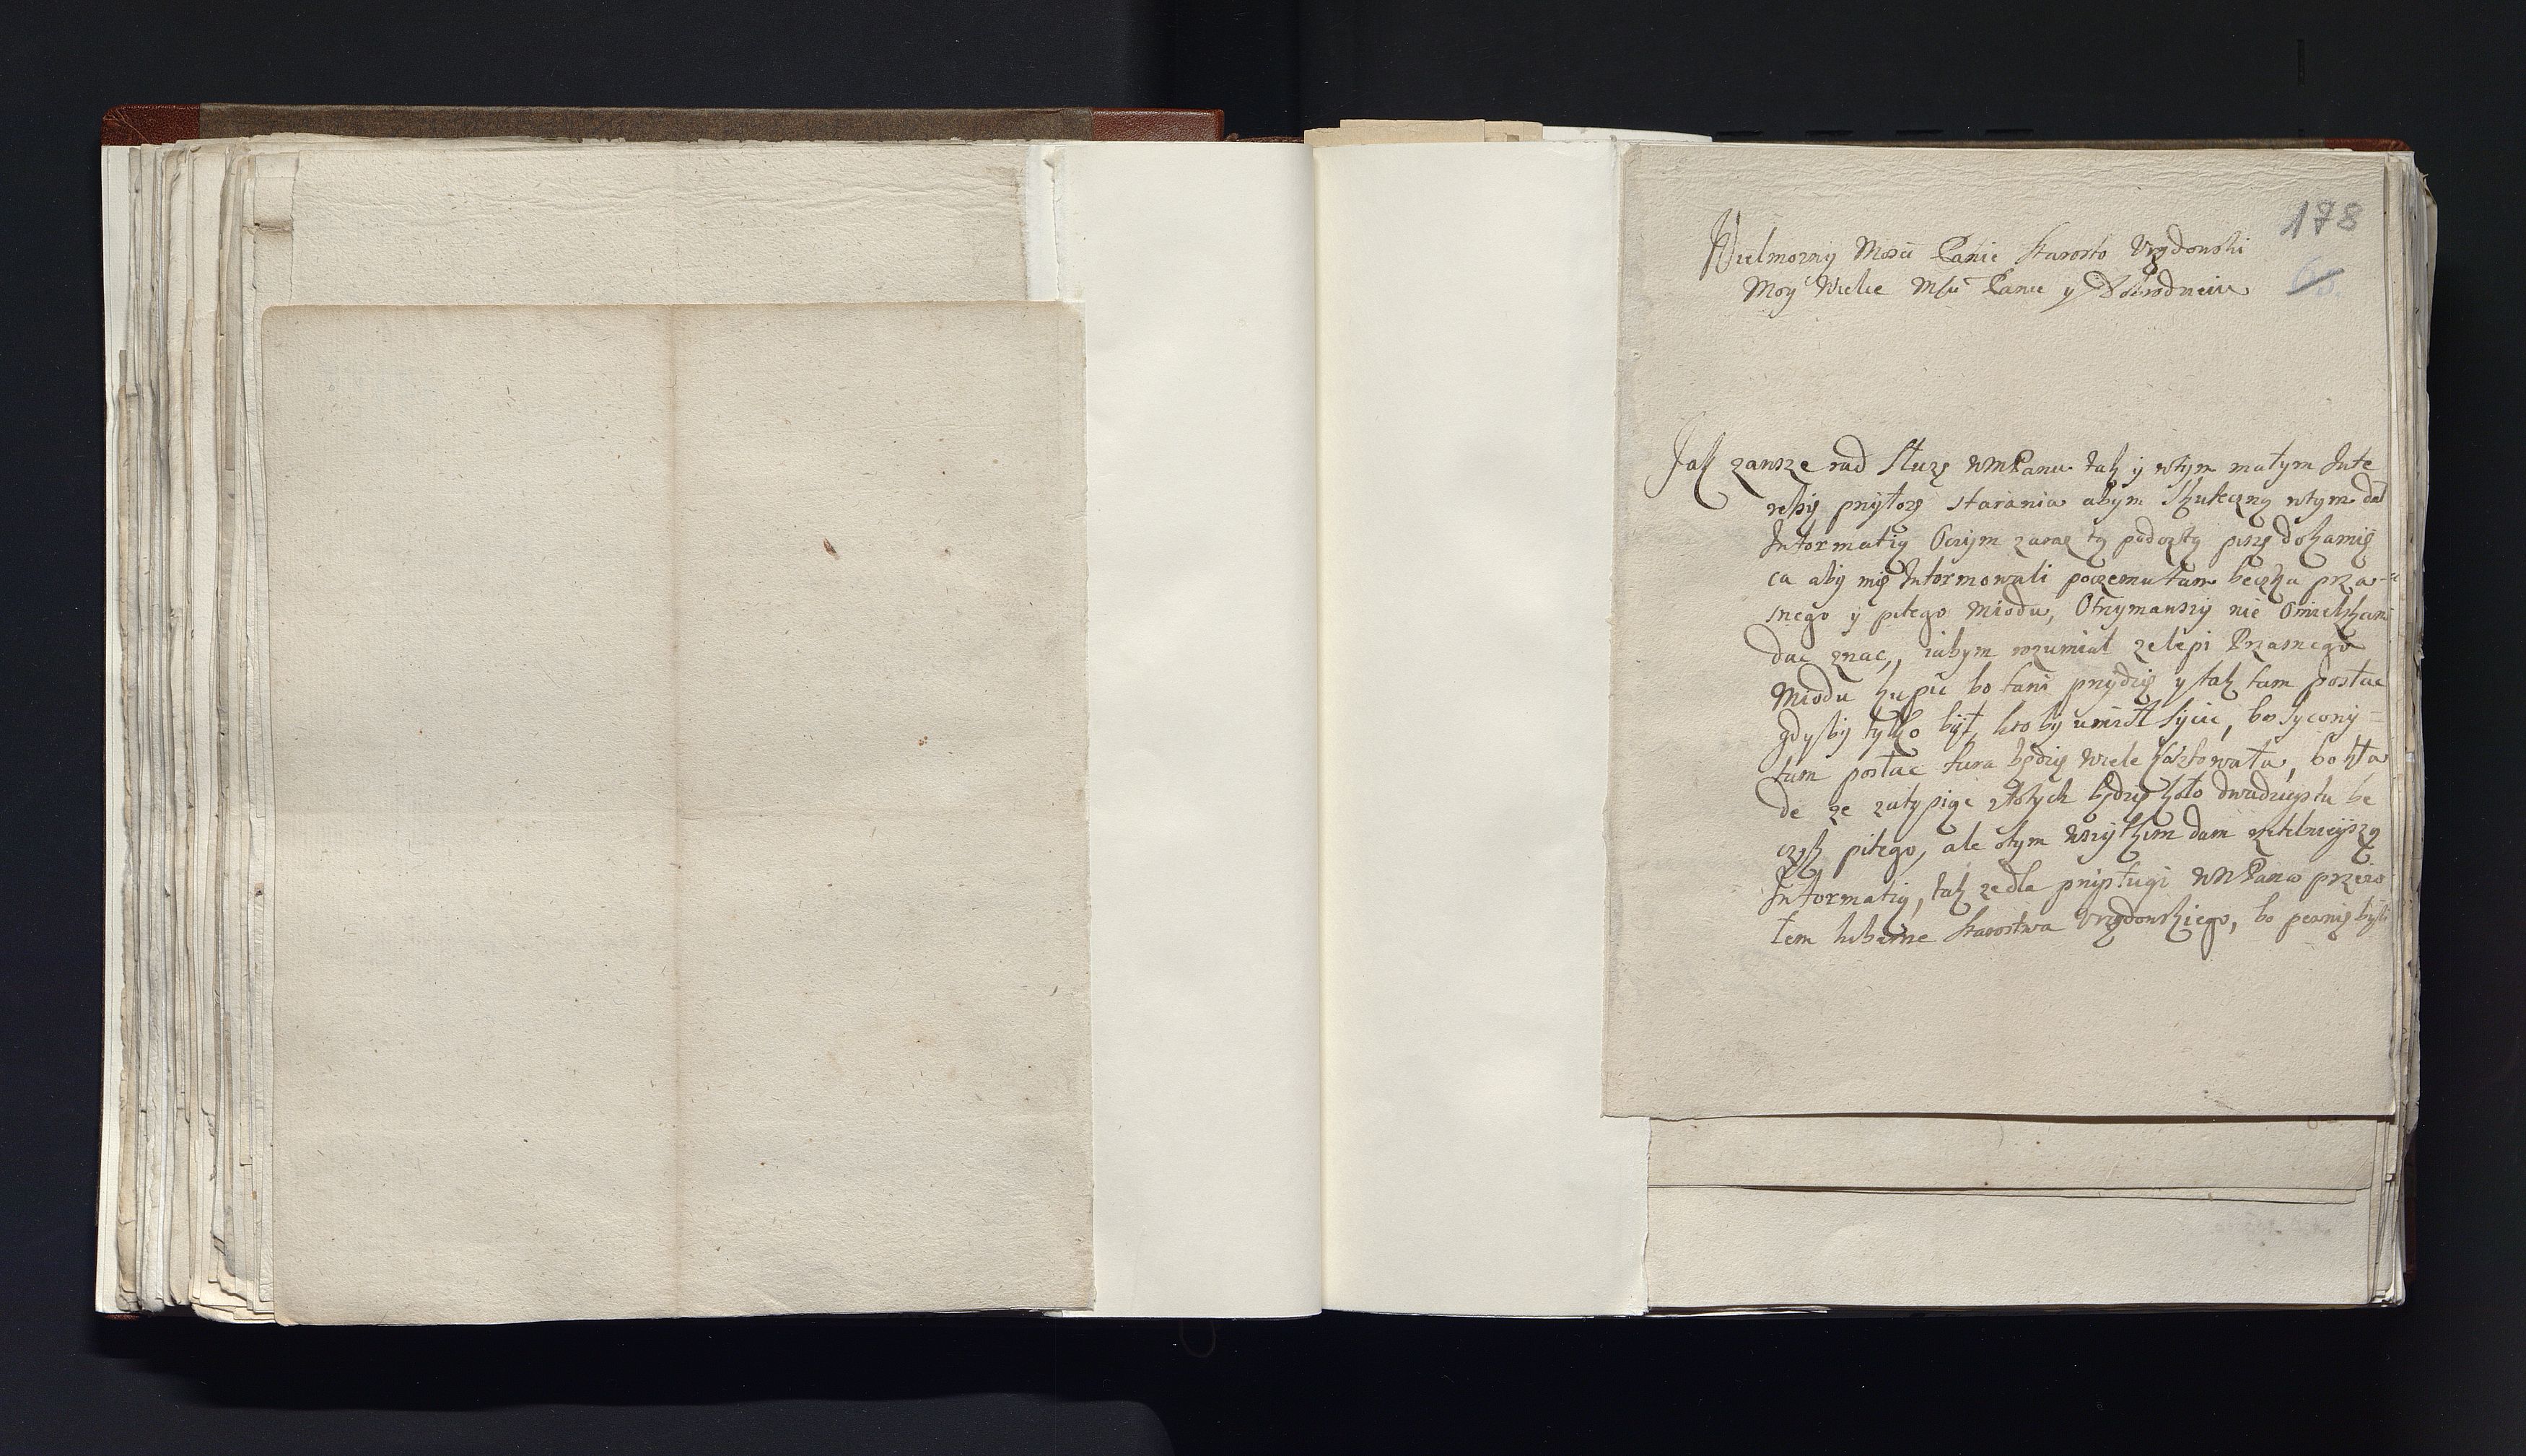 178
Wielmozny Mosci Panie Starosto Vrzędowski
Moy Wielce Msci Panie y Dobrodzieiu
Jak zawsze rad Służę WMPanu tak y wtym małym Inte
ressię przyłozę starania abym Skuteczną wtym dał
Informatią Oczym zaraz tą pocztą piszę do
ca aby mię Informowali poczemu tam beczka prza-
snego y pitego Miodu, Otrzymawszy nie Omieszkam
dac znac, iabym rozumiał ze lepi Przasnego
Miodu kupic bo tani przydzię y tak tam posłac
gdyby tylko był kto by umiał sycic, bo sycony
tam posłac fura będzię wiele kosztowała, bo kła
de ze za tysiąc złotych będzię koło dwudziestu be
czek pitego, ale otym wszytkim dam
Informatią, tak ze dla przysługi WMPana
łem Starostwa Vrzędowskiego, bo pewnię